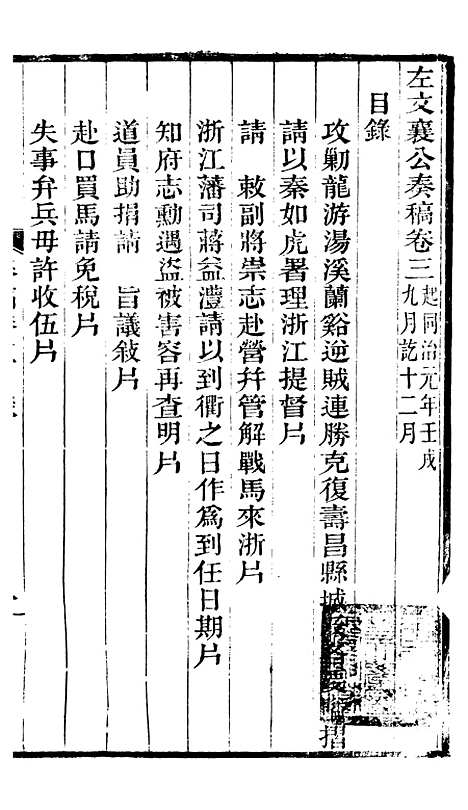 左文襄公奏稿卷三起同治元年壬戌九月訖十二月
目錄
攻勦龍游湯溪蘭谿逆賊連勝克復壽昌縣城摺
請以秦如虎署理浙江提督片
請 敕副將崇志赴營幷管解戰馬來浙片
浙江藩司蔣益澧請以到衢之日作爲到任日期片
知府志勳遇盜被害容再查明片
道員助捐請 旨議敍片
赴口買馬請免稅片
失事弁兵毋許收伍片